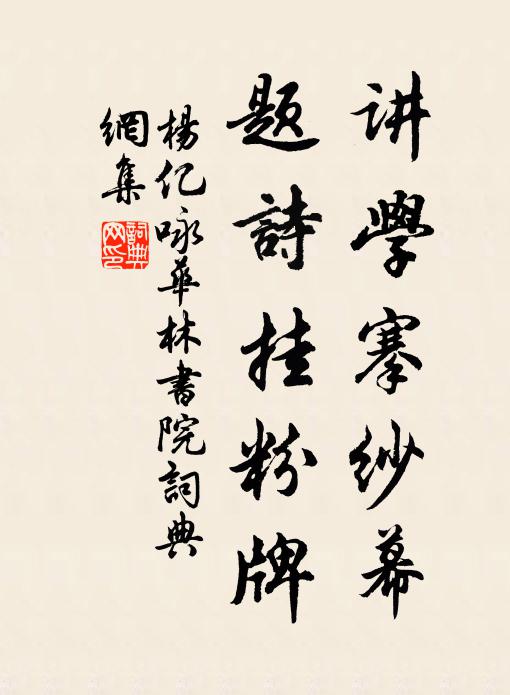 讲學搴纱幕
題詩挂粉牌
楊亿咏華林書院詞典
網集
詞典
网印